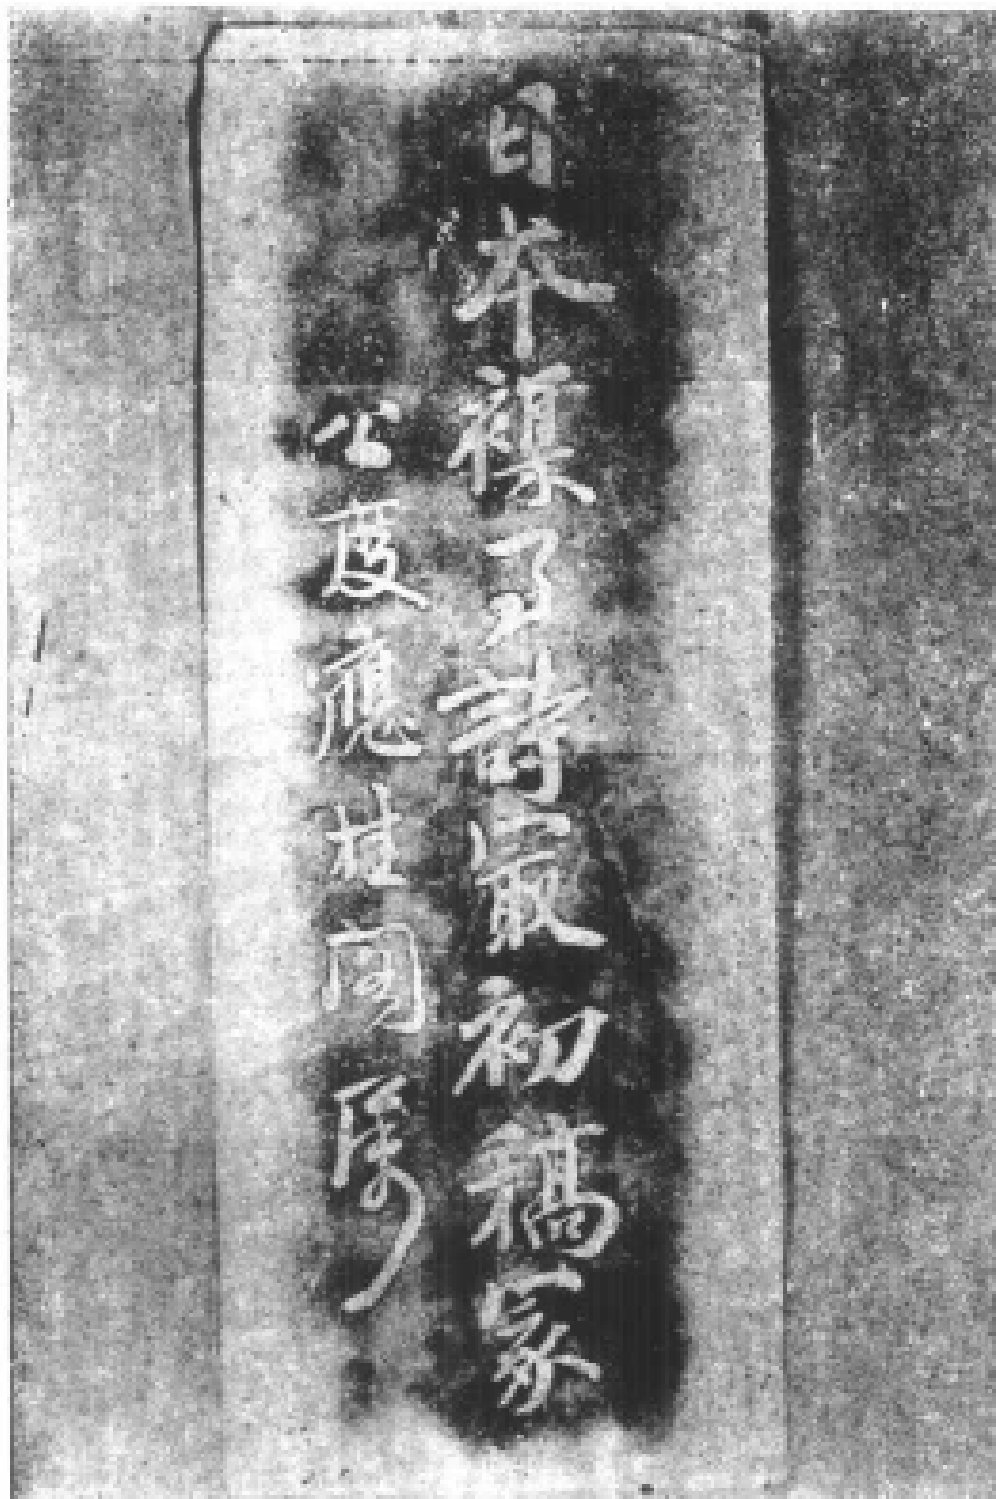 日本襍事詩最初稿冢
公度應桂閣属